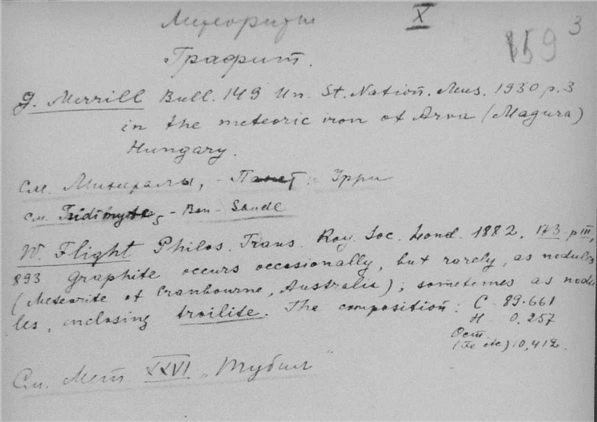 Метеориты X 159 3
Графит.
G. Merrill Bull. 149 Un. St. Nation. Mus. 1930 p. 3
in the meteoric iron of Arva (Magura)
Hungary.
см. Минералы, - Панет и Урри
см. Tridimyte, - Ben - Saude
W. Flight Philos. Trans. Roy. Soc. Lond. 1882, 173 p III,
893 Graphite occurs occasionally, but rarely, as nodules
(Meteorite of Cranbourne, Australia); sometimes as nodu
les, inclosing troilite. The composition: C - 89.661
H - 0,257
Ост
(Fe etc) 10,412.
См. Мет XXVI „